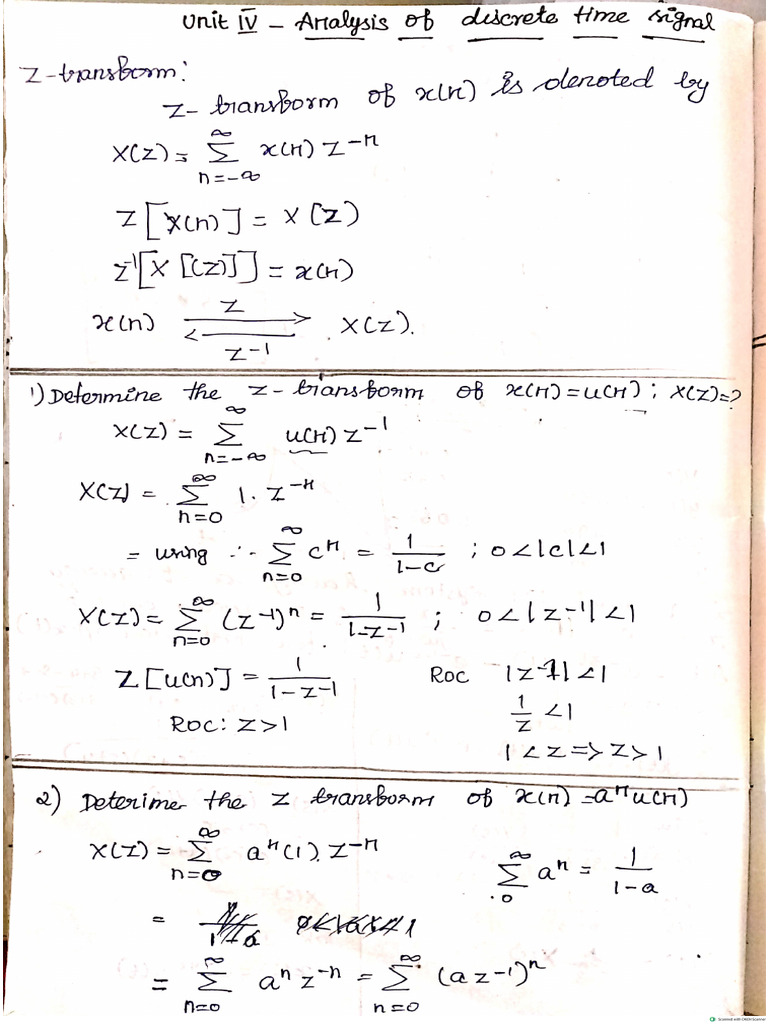 Unit IV - Analysis of discrete time signal
Z-transform:
Z- transform of x(n) is denoted by
X(Z) = ∞ Σ n=-∞ x(n) Z^-n
Z[X(n)] = X(Z)
Z^-1[X[(Z)]] = x(n)
x(n) ⇌ Z Z^-1 X(Z).
1) Determine the Z-transform of x(n)=u(n); X(Z)=?
X(Z) = ∞ Σ n=-∞ u(n) Z^-1
X(Z) = ∞ Σ n=0 1. Z^-n
= using ∴ ∞ Σ n=0 C^n = 1/(1-C) ; 0<|C|<1
X(Z) = ∞ Σ n=0 (Z^-1)^n = 1/(1-Z^-1) ; 0<|Z^-1|<1
Z[u(n)] = 1/(1-Z^-1) ROC |Z^-1|<1
ROC: Z>1 1/Z <1
1<Z => Z>1
2) Deterime the Z transform of x(n)=a^n u(n)
X(Z) = ∞ Σ n=0 a^n (1). Z^-n ∞ Σ 0 a^n = 1/(1-a)
=
= ∞ Σ n=0 a^n Z^-n = ∞ Σ n=0 (a Z^-1)^n
Scanned with OKEN Scanner